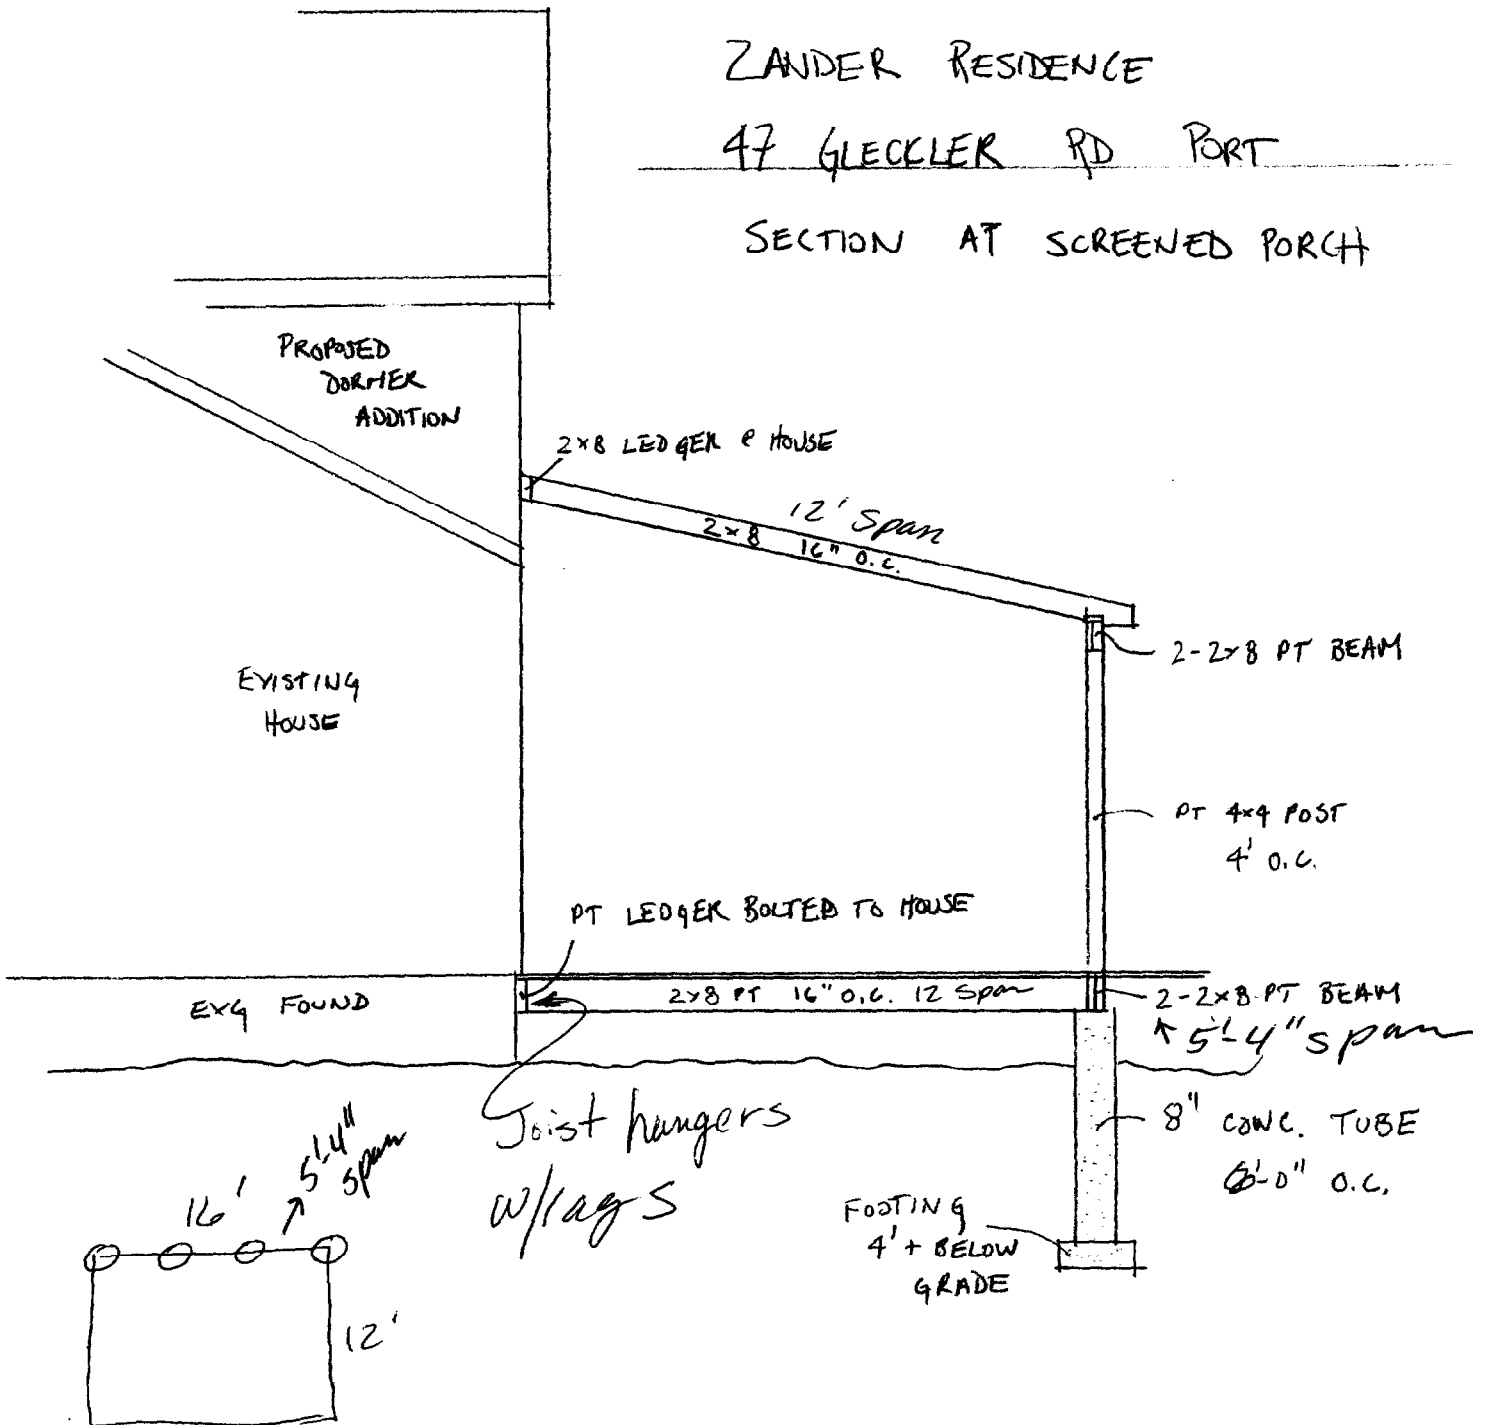 ZANDER RESIDENCE
47 GLECKLER RD PORT
SECTION AT SCREENED PORCH
PROPOSED
DORMER
ADDITION
2x8 LEDGER @ HOUSE
12' Span
2x8 16" O.C.
2-2x8 PT BEAM
EXISTING
HOUSE
PT 4x4 POST
4' O.C.
PT LEDGER BOLTED TO HOUSE
EXG FOUND
2x8 PT 16" O.C. 12 Span
2-2x8 PT BEAM
5'-4" span
Joist hangers
w/lags
8" CONC. TUBE
6'-0" O.C.
FOOTING
4' + BELOW
GRADE
5'-4"
span
16'
12'